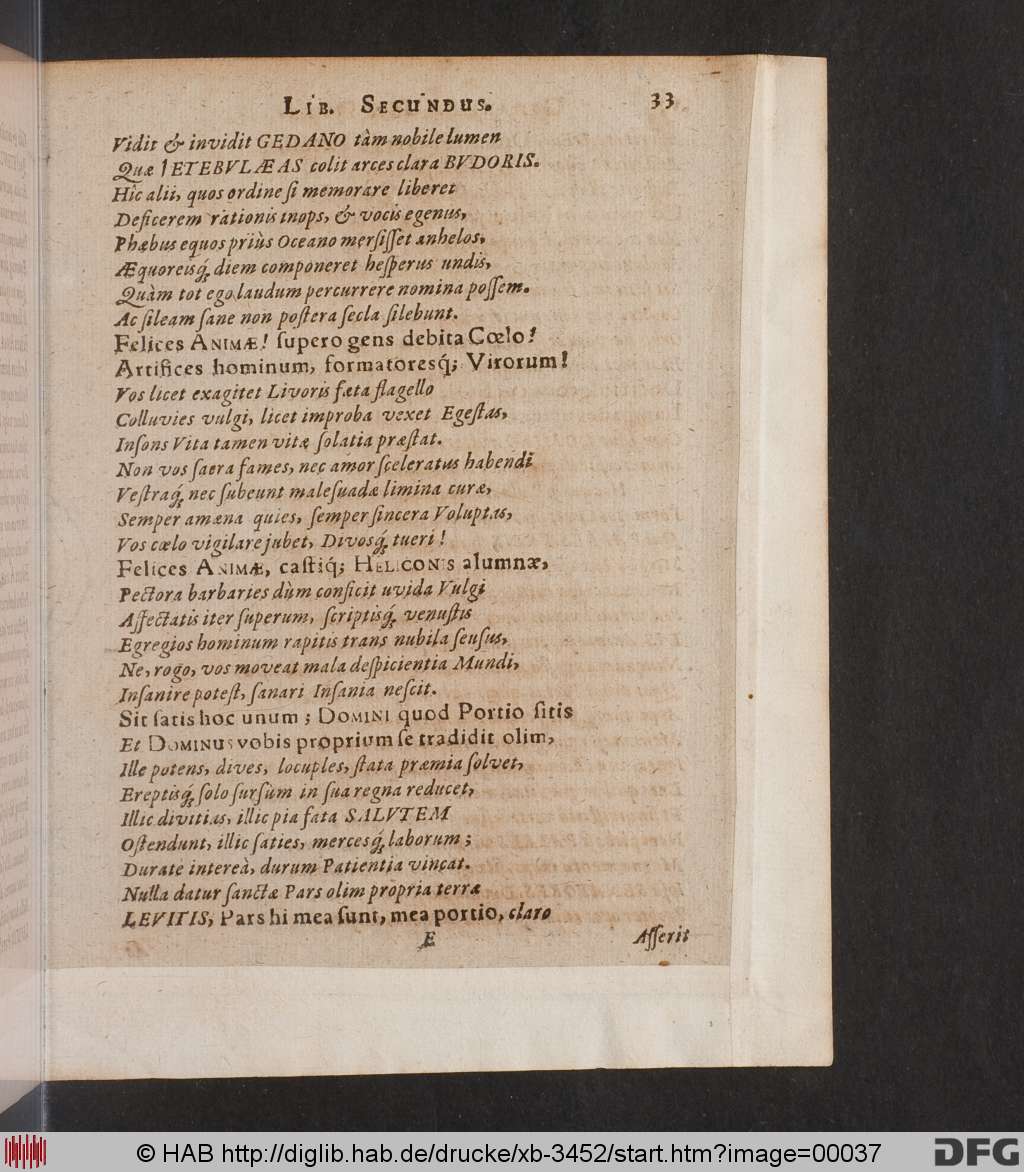 LIB. SECUNDUS. 33
Vidit & invidit GEDANO tàm nobile lumen
Quæ IETEBVLÆAS colit arces clara BVDORIS.
Hic alii, quos ordine si memorare liberet
Deficerem rationis inops, & vocis egenus,
Phæbus equos priùs Oceano mersisset anhelos,
Æquoreisq́; diem componeret hesperus undis,
Quàm tot ego laudum percurrere nomina possem.
Ac sileam sane non postera secla silebunt.
Felices ANIMÆ! supero gens debita Cœlo!
Artifices hominum, formatoresq́; Virorum!
Vos licet exagitet Livoris fæta flagello
Colluvies vulgi, licet improba vexet Egestas,
Insons Vita tamen vitæ solatia præstat.
Non vos saera fames, nec amor sceleratus habendi
Vestraq́; nec subeunt malesuadæ limina curæ,
Semper amæna quies, semper sincera Voluptas,
Vos cœlo vigilare jubet, Divosq́; tueri!
Felices ANIMÆ, castiq́; HELICONIS alumnæ,
Pectora barbaries dùm conficit uvida Vulgi
Affectatis iter superum, scriptisq́; venustis
Egregios hominum rapitis trans nubila seusus,
Ne, rogo, vos moveat mala despicientia Mundi,
Insanire potest, sanari Insania nescit.
Sit satis hoc unum; DOMINI quod Portio sitis
Et DOMINUS vobis proprium se tradidit olim,
Ille potens, dives, locuples, stata præmia solvet,
Ereptisq́; solo sursùm in sua regna reducet,
Illic divitias, illic pia fata SALVTEM
Ostendunt, illic saties, mercesq́; laborum;
Durate intereà, durum Patientia vinçat.
Nulla datur sanctæ Pars olim propria terræ
LEVITIS, Pars hi mea sunt, mea portio, claro
E Asserit
© HAB http://diglib.hab.de/drucke/xb-3452/start.htm?image=00037
DFG